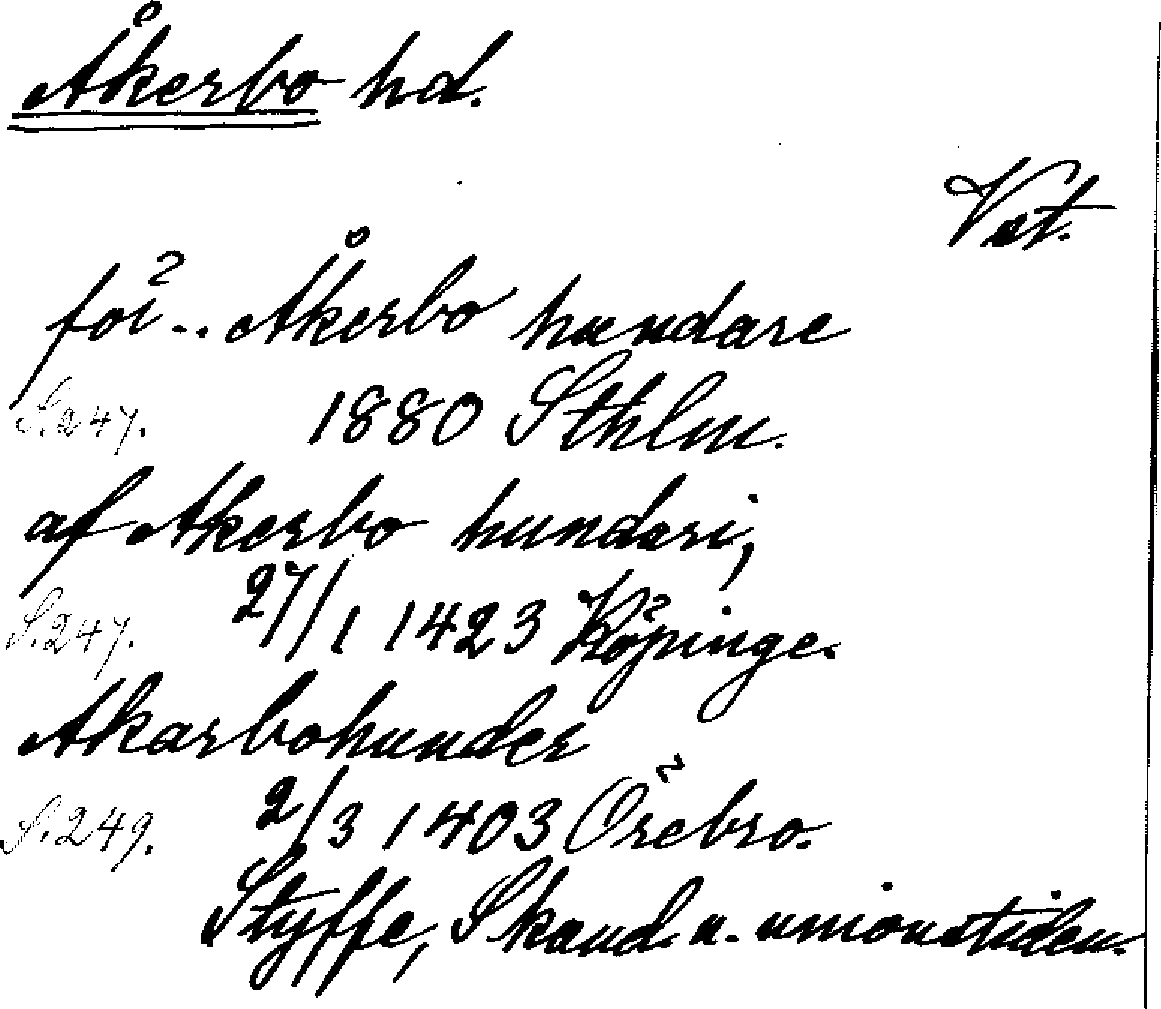 Åkerbo hd.
Vst.
för.. Åkerbo hundare
S. 247. 1880 Sthlm.
af Akerbo hundari,
S. 247. 27/1 1423 Köpinge.
Akarbohunder
S. 249. 2/3 1403 Örebro.
Styffe, Skand. u. unionstiden.